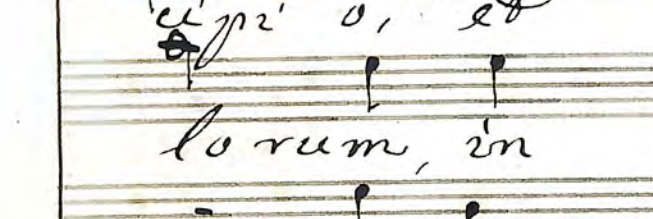 cipi o, et
lo rum, in